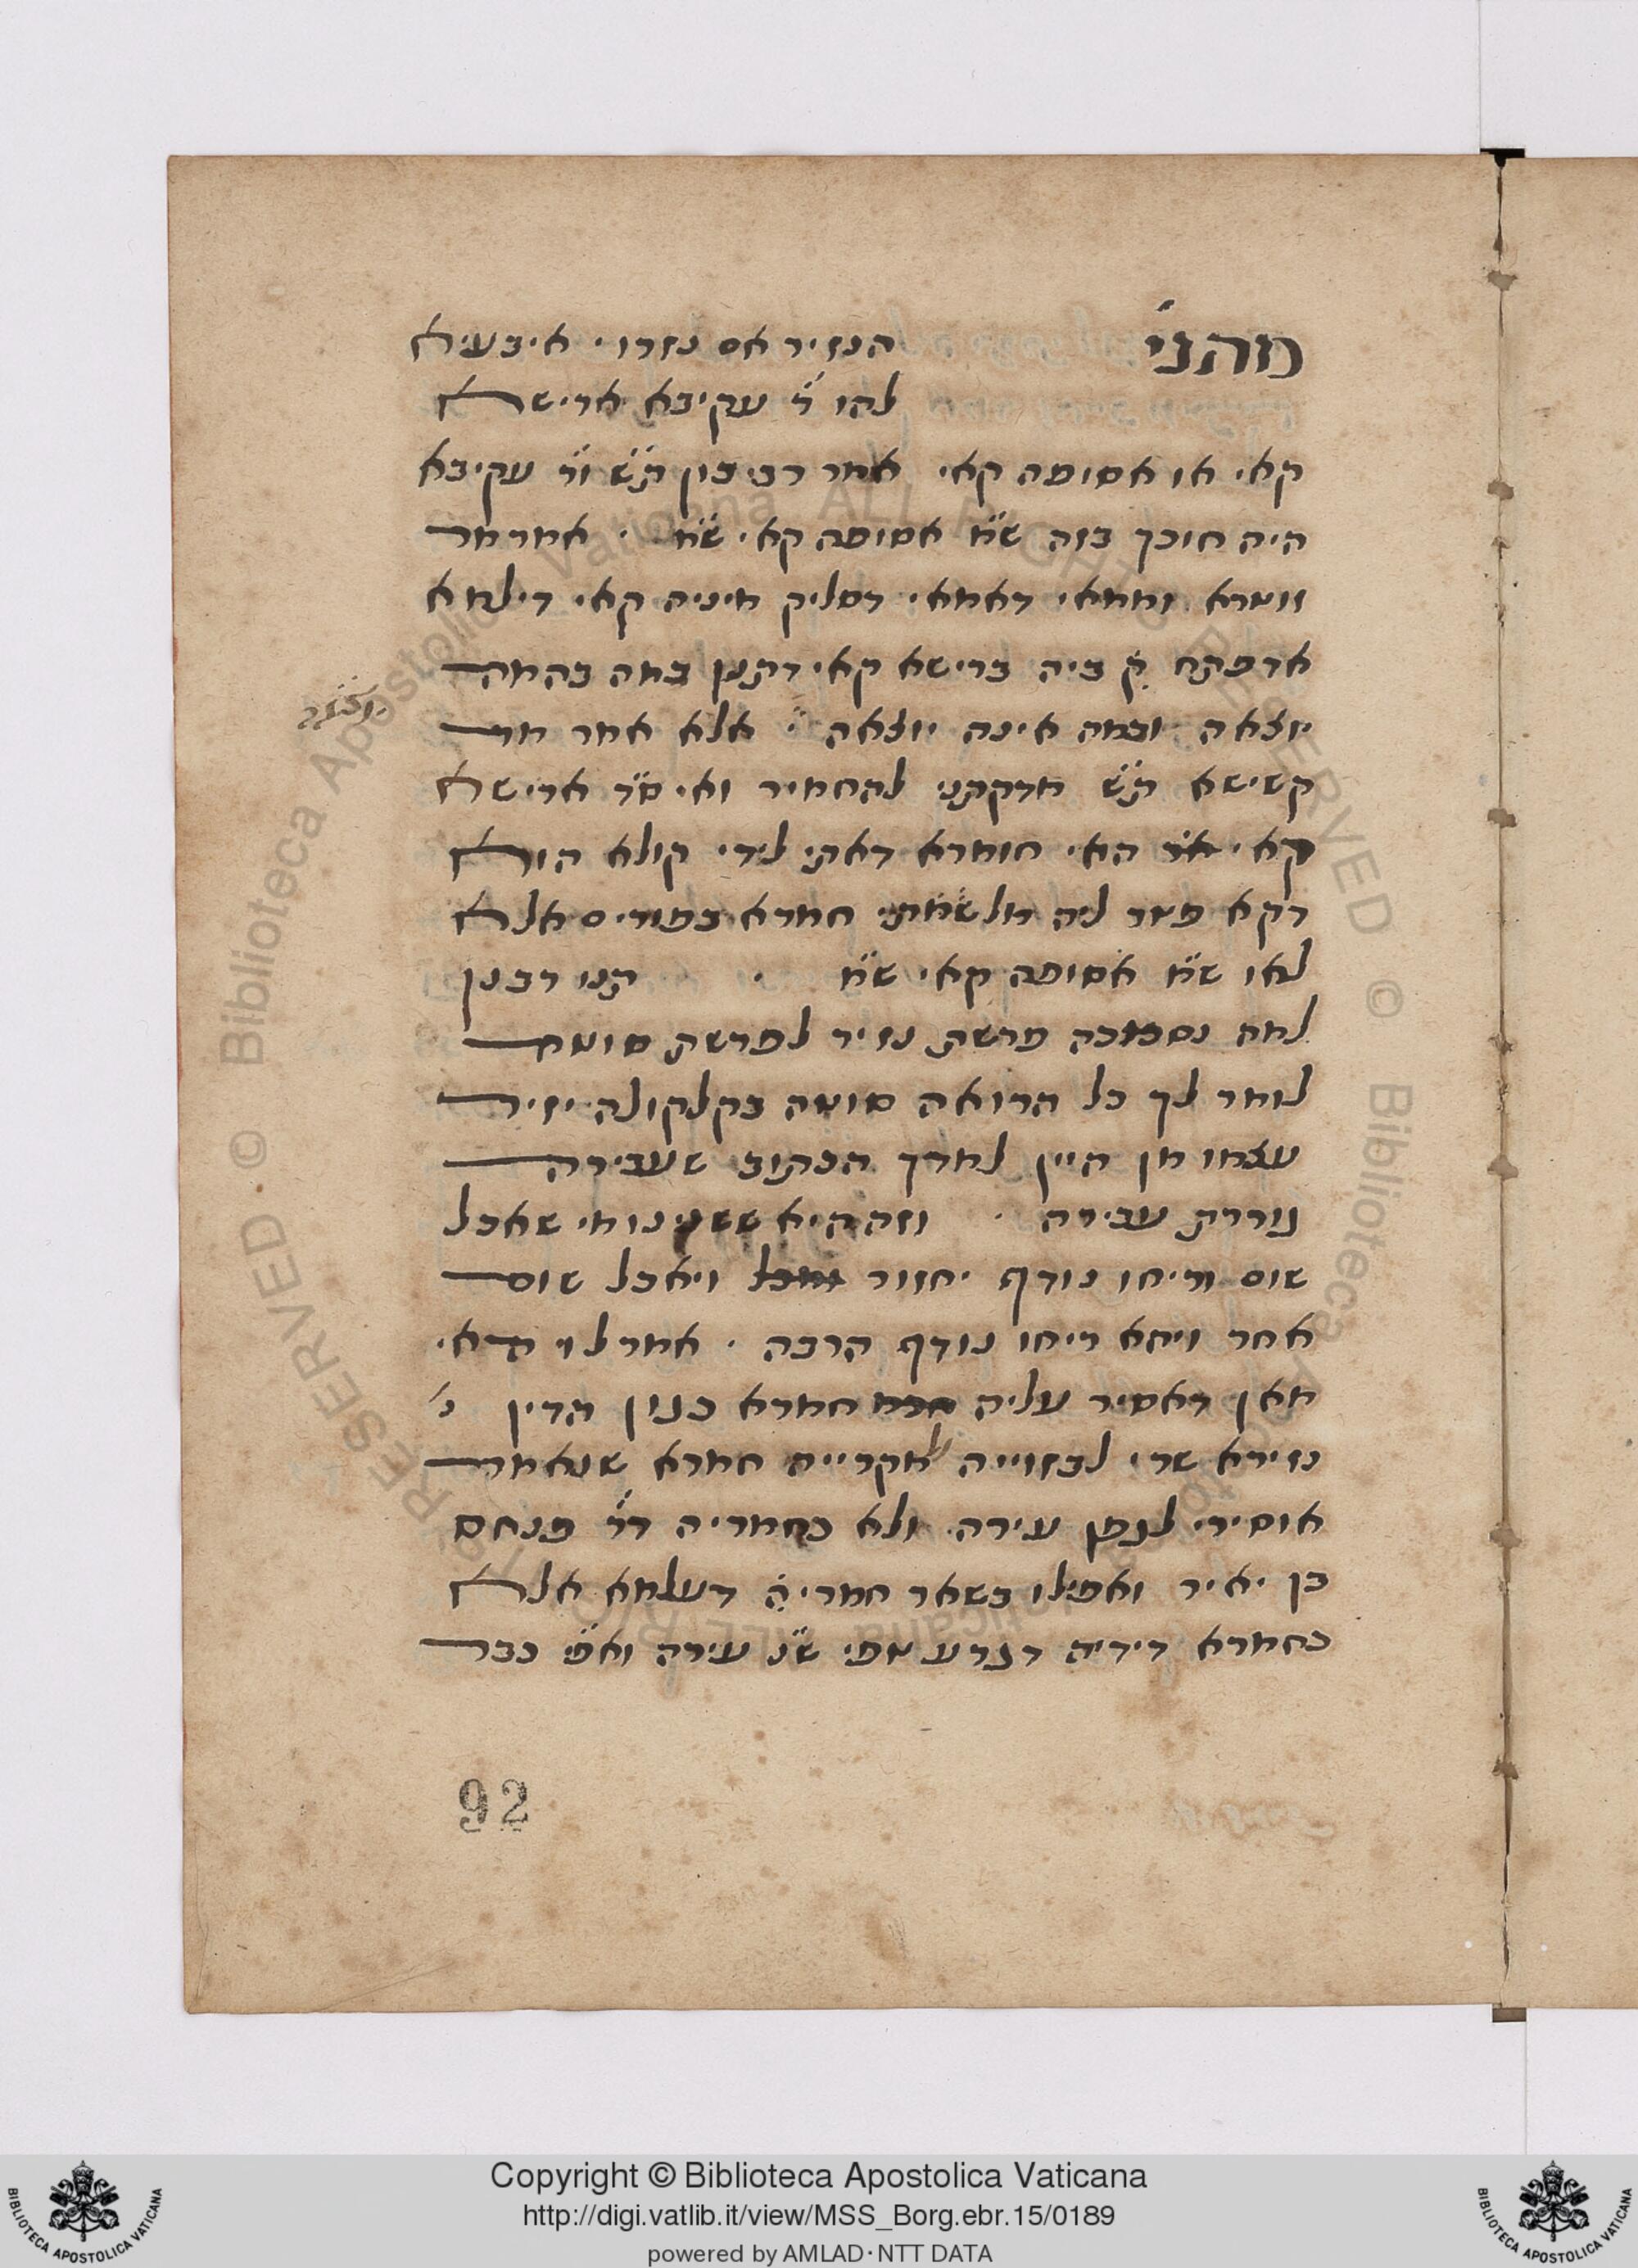 מתני׳ הנזיר אס נזרו · איבעיא
להו ר׳ עקיבא ארישא
קאי או אסיפה קאי אמר רבי בון ת״ש ור׳ עקיבא
היה חוכך בזה ש״מ אסיפה קאי ש״מ · אמר מר
זוטרא וממאי דאמאי דסליק מיניה קאי דילמא
אדפתח ק ביה ברישא קאי דתנן במה בהמה
יוצאה ובמה אינה יוצאה · אלא אמר מר
קשישא ת״ש מדקתני להחמיר ואי ס״ד ארישא
קאי האי חומרא דאתי לידי קולא הוא
דקא פטר ליה חמרא בפורים אלא
לאו ש״מ אסיפה קאי ש״מ · תנו רבנן
למה נסמכה פרשת נזיר לפרשת סוטה
לומר לך כל הרואה סוטה בקלקולה יזיר
עצמו מן היין למדך הכתוב שעבירה
גוררת עבירה · וזה היא ששנינו מי שאכל
שום וריחו נודף יחזור ויאכל שום
אחר ויהא ריחו נודף הרבה · אמר לוי האי
מאן דאסיר עליה חמרא כגון הדין
נזירא שרי לבזוייה למקרייה חמרא שנאמר
אוסירי לגפן עירה ולא כחמריה דר׳ פנחס
בן יאיר ואפילו בשאר חמריה דעלמא אלא
כחמרא דידיה דגרע טפי ש״נ עירה ואפי׳ כבר
92
Copyright © Biblioteca Apostolica Vaticana
http://digi.vatlib.it/view/MSS_Borg.ebr.15/0189
powered by AMLAD · NTT DATA